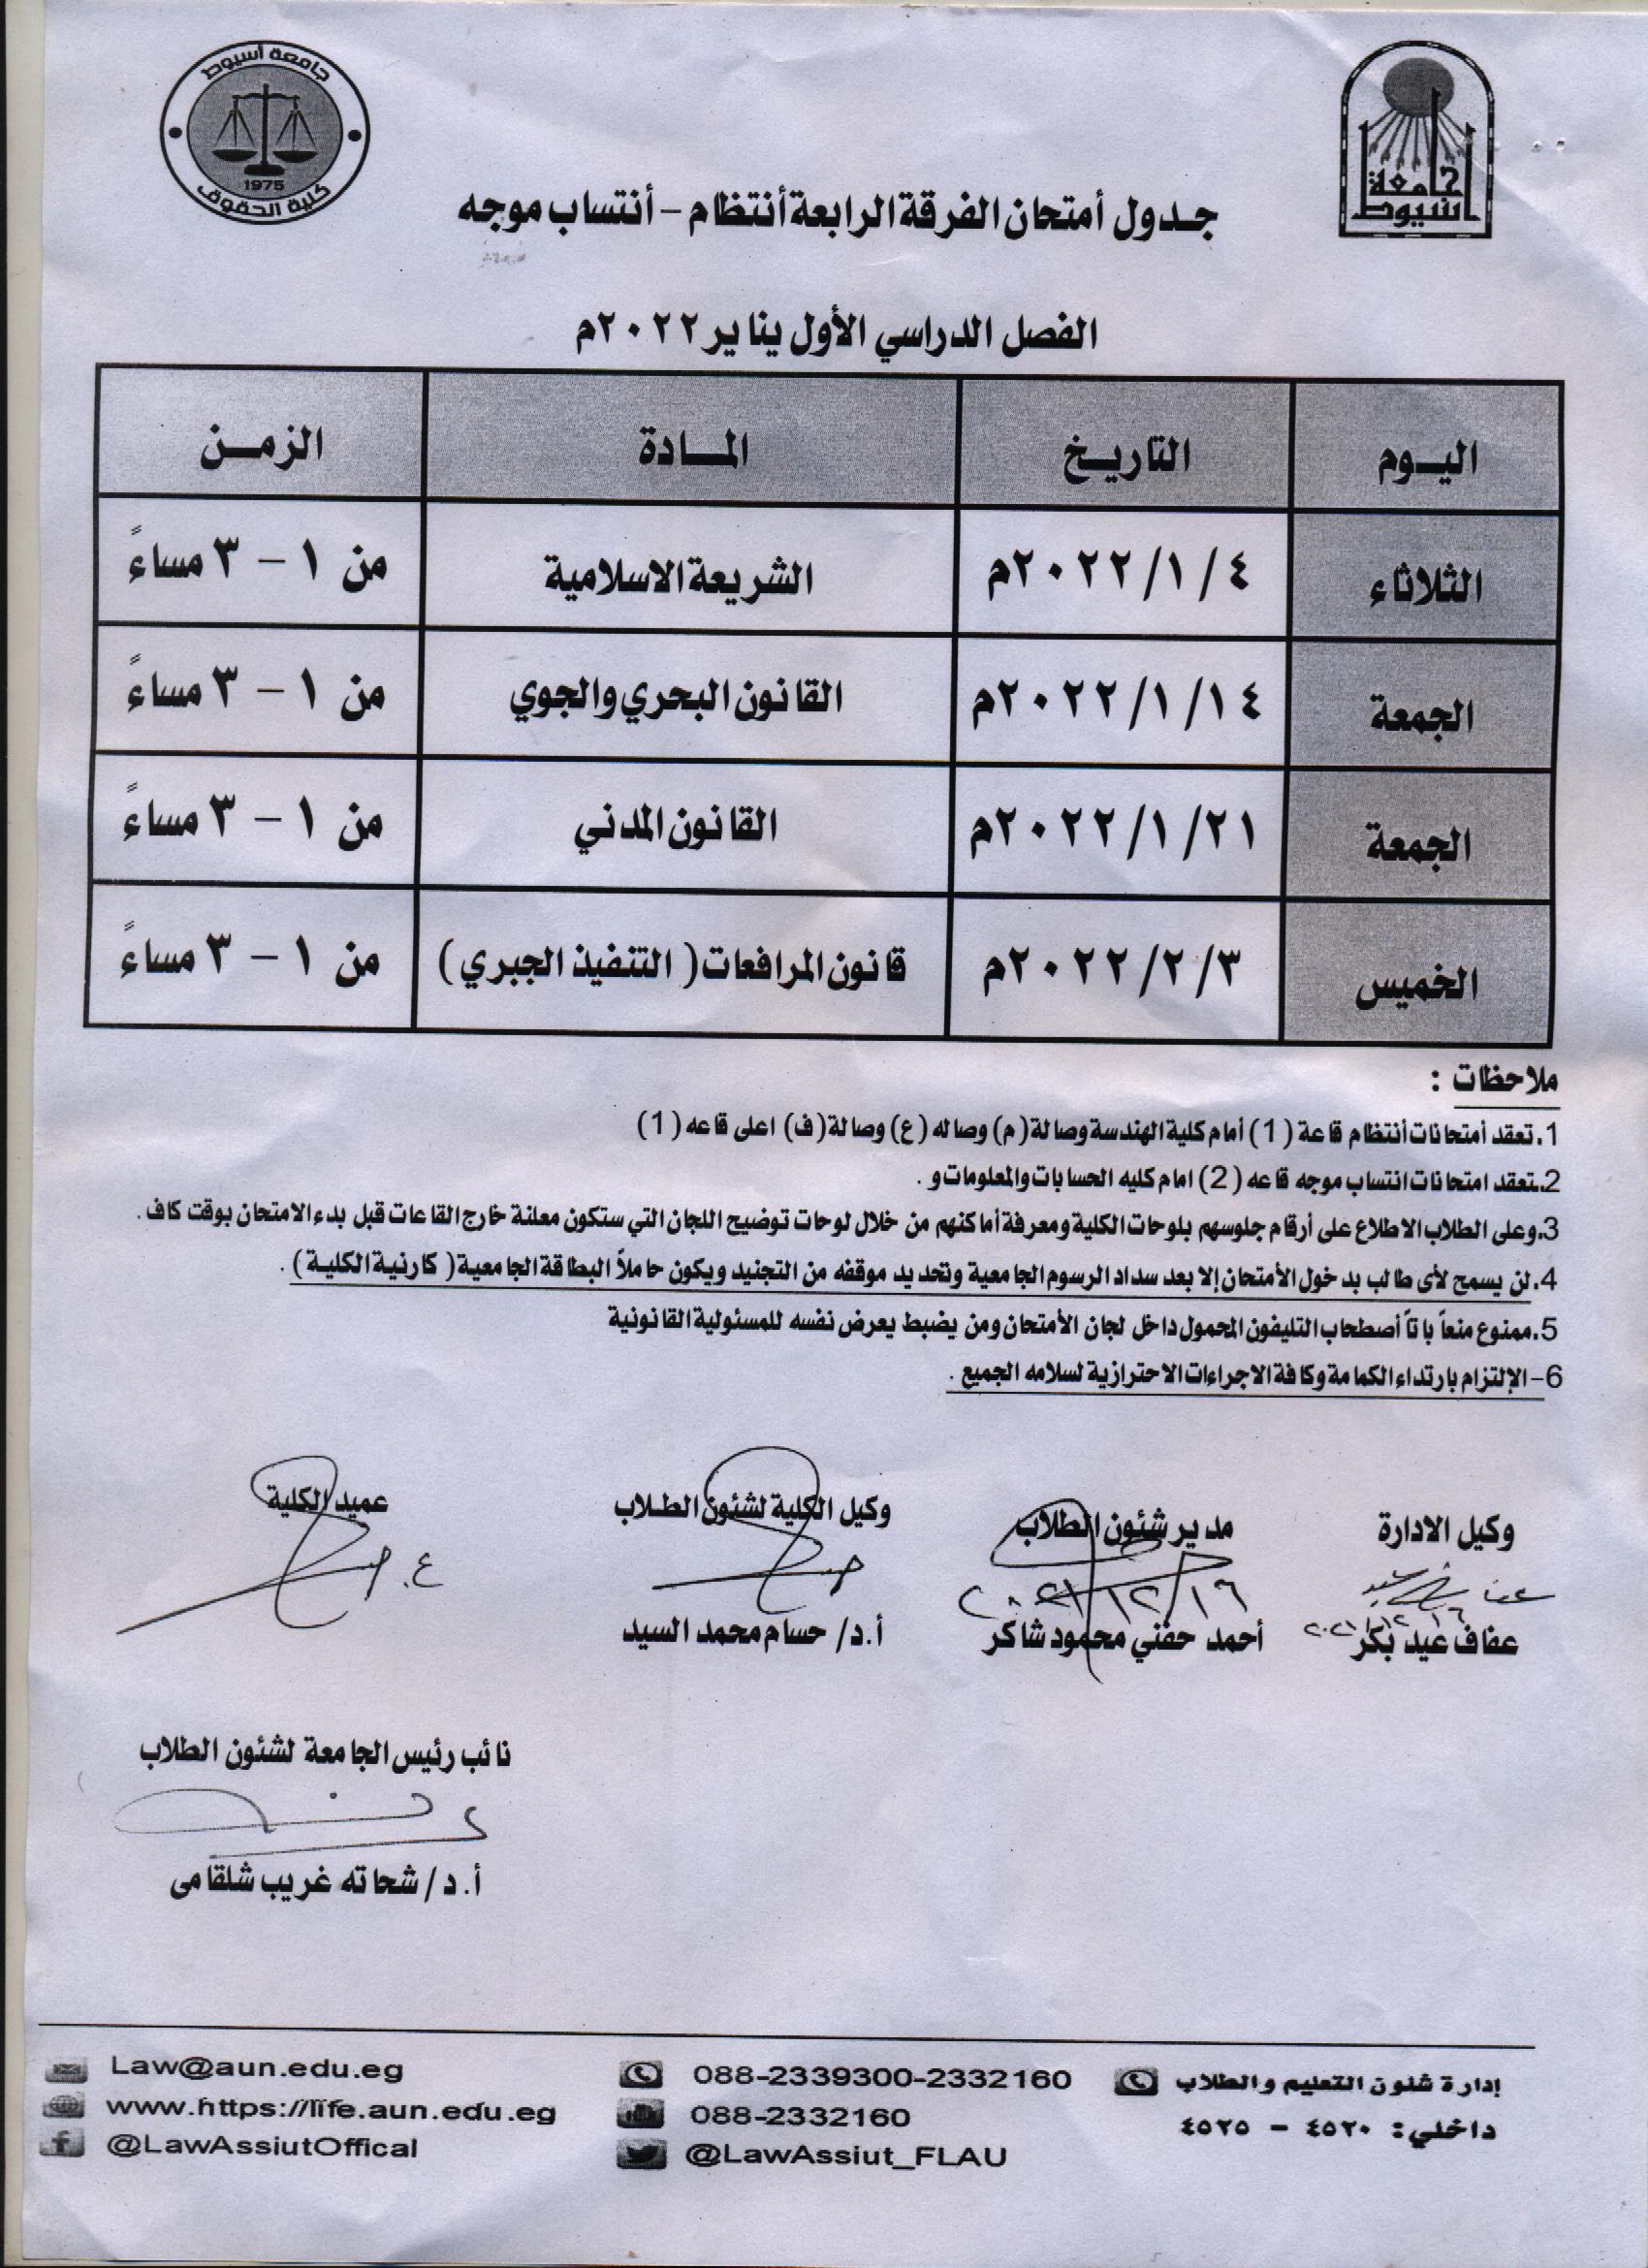 جامعة أسيوط
1975
كلية الحقوق
جامعة
أسيوط
جـدول أمتحان الفرقة الرابعة أنتظام – أنتساب موجه
الفصل الدراسي الأول يناير ٢٠٢٢م
اليـــوم التاريـــخ المـــادة الزمـــن
الثلاثاء ٤ / ١ / ٢٠٢٢م الشريعة الاسلامية من ١ – ٣ مساءً
الجمعة ١٤ / ١ / ٢٠٢٢م القانون البحري والجوي من ١ – ٣ مساءً
الجمعة ٢١ / ١ / ٢٠٢٢م القانون المدني من ١ – ٣ مساءً
الخميس ٣ / ٢ / ٢٠٢٢م قانون المرافعات ( التنفيذ الجبري ) من ١ – ٣ مساءً
ملاحظات :
1.تعقد أمتحانات أنتظام قاعة (1) أمام كلية الهندسة وصالة (م) وصاله (ع) وصالة (ف) اعلى قاعه (1)
2.تعقد امتحانات انتساب موجه قاعه (2) امام كليه الحسابات والمعلومات و .
3.وعلى الطلاب الاطلاع على أرقام جلوسهم بلوحات الكلية ومعرفة أماكنهم من خلال لوحات توضيح اللجان التي ستكون معلنة خارج القاعات قبل بدء الامتحان بوقت كاف .
4.لن يسمح لأى طالب بدخول الأمتحان إلا بعد سداد الرسوم الجامعية وتحديد موقفه من التجنيد ويكون حاملاً البطاقة الجامعية ( كارنية الكليـة ) .
5.ممنوع منعاً باتاً أصطحاب التليفون المحمول داخل لجان الأمتحان ومن يضبط يعرض نفسه للمسئولية القانونية
6– الإلتزام بارتداء الكمامة وكافة الاجراءات الاحترازية لسلامه الجميع .
وكيل الادارة مدير شئون الطلاب وكيل الكلية لشئون الطـلاب عميد الكلية
٢٠٢١/١٢/١٦
٢٠٢١/١٢/١٦
عفاف عيد بكر أحمد حفني محمود شاكر أ.د/ حسام محمد السيد
نائب رئيس الجامعة لشئون الطلاب
أ.د/ شحاته غريب شلقامى
إدارة شئون التعليم والطلاب 088-2339300-2332160 Law@aun.edu.eg
داخلي: ٤٥٢٠ – ٤٥٢٥ 088-2332160 www.https://life.aun.edu.eg
@LawAssiut_FLAU @LawAssiutOffical